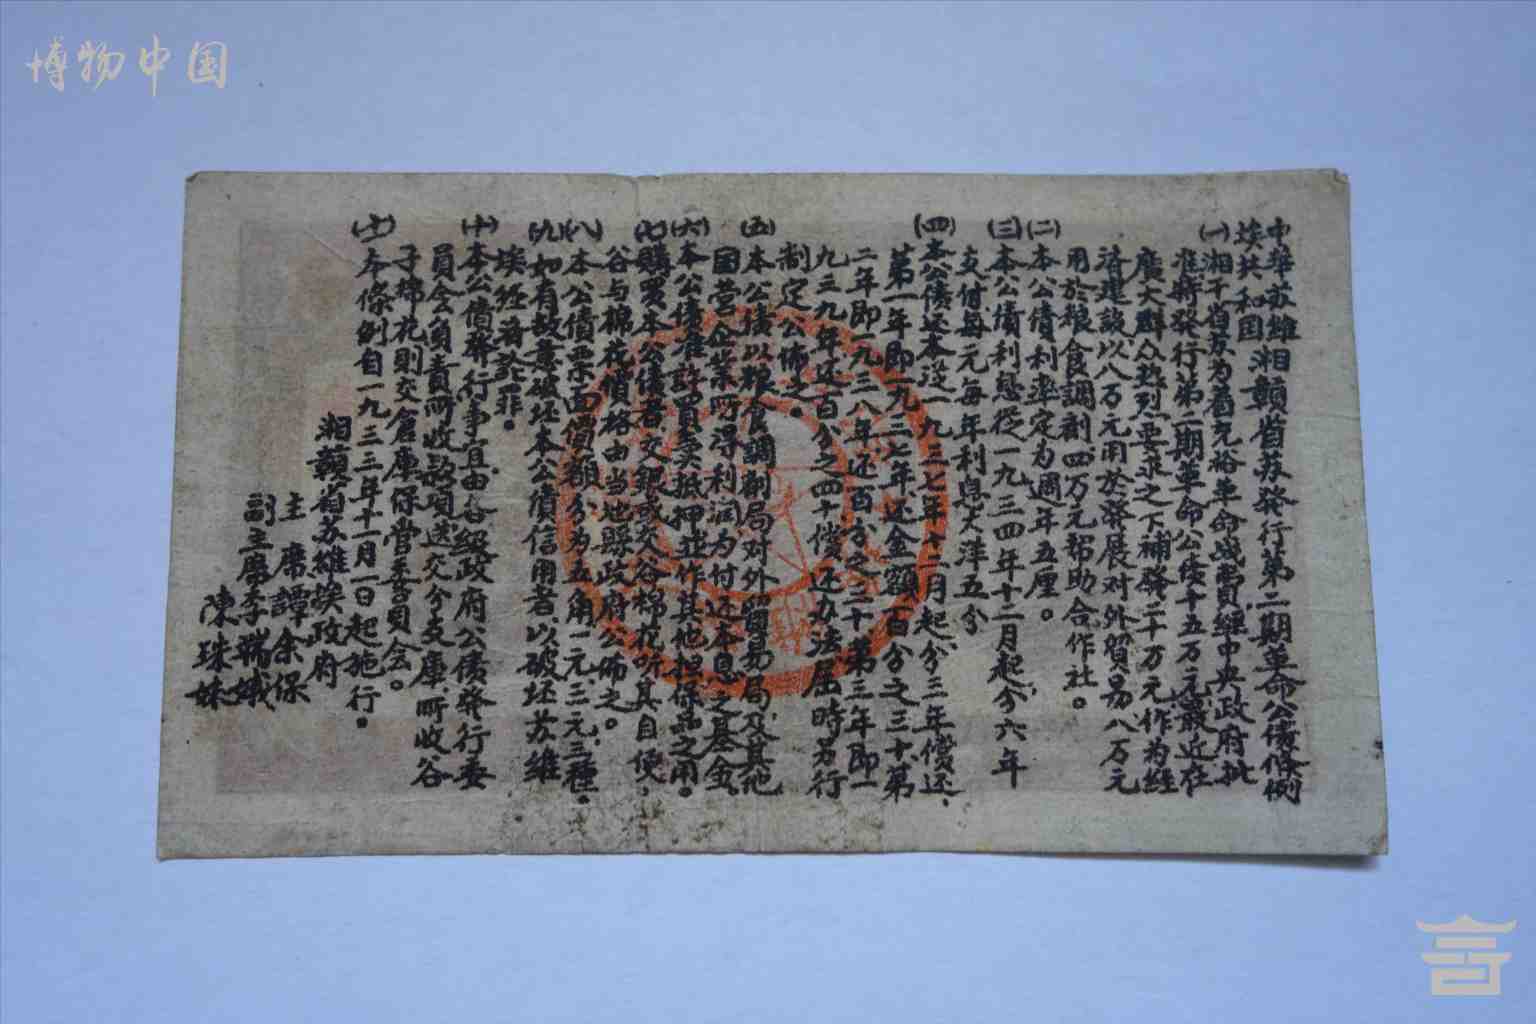 博物中国
中華苏維埃共和国湘贛省苏發行第二期革命公债條例
(一)湘干省苏为着充裕革命战費經中央政府批
准特發行第二期革命公债十五万元最近在
廣大群众热烈要求之下補發二十万元作为經
济建設以八万元用於發展对外貿易八万元
用於粮食調剂四万元帮助合作社。
(二)本公债利率定为週年五厘。
(三)本公债利息從一九三四年十二月起分六年
支付每元每年利息大洋五分
(四)本公债还本從一九三七年十二月起、分三年償还、
第一年即一九三七年还金額百分之三十第
二年即一九三八年还百分之三十第三年即一
九三九年还百分之四十償还办法屆時另行
制定公佈之。
(五)本公债以粮食調剂局对外貿易局及其他
国营企業所得利润为付还本息之基金、
(六)本公债准許買卖抵押並作其他担保品之用。
(七)購買本公债者交銀或交谷棉花听其自便、
谷与棉花價格由当地縣政府公佈之。
(八)本公债票面價額分为五角一元二元三種。
(九)如有故意破坯本公债信用者以破坯苏維
埃經济於罪。
(十)本公债發行事宜由各級政府公债發行委
員会負責所收款項送交分支庫、所收谷
子棉花則交倉庫保管委員会。
(十一)本條例自一九三三年十一月一日起施行。
湘贛省苏維埃政府
主席譚余保
副主席李端娥
陳珠妹